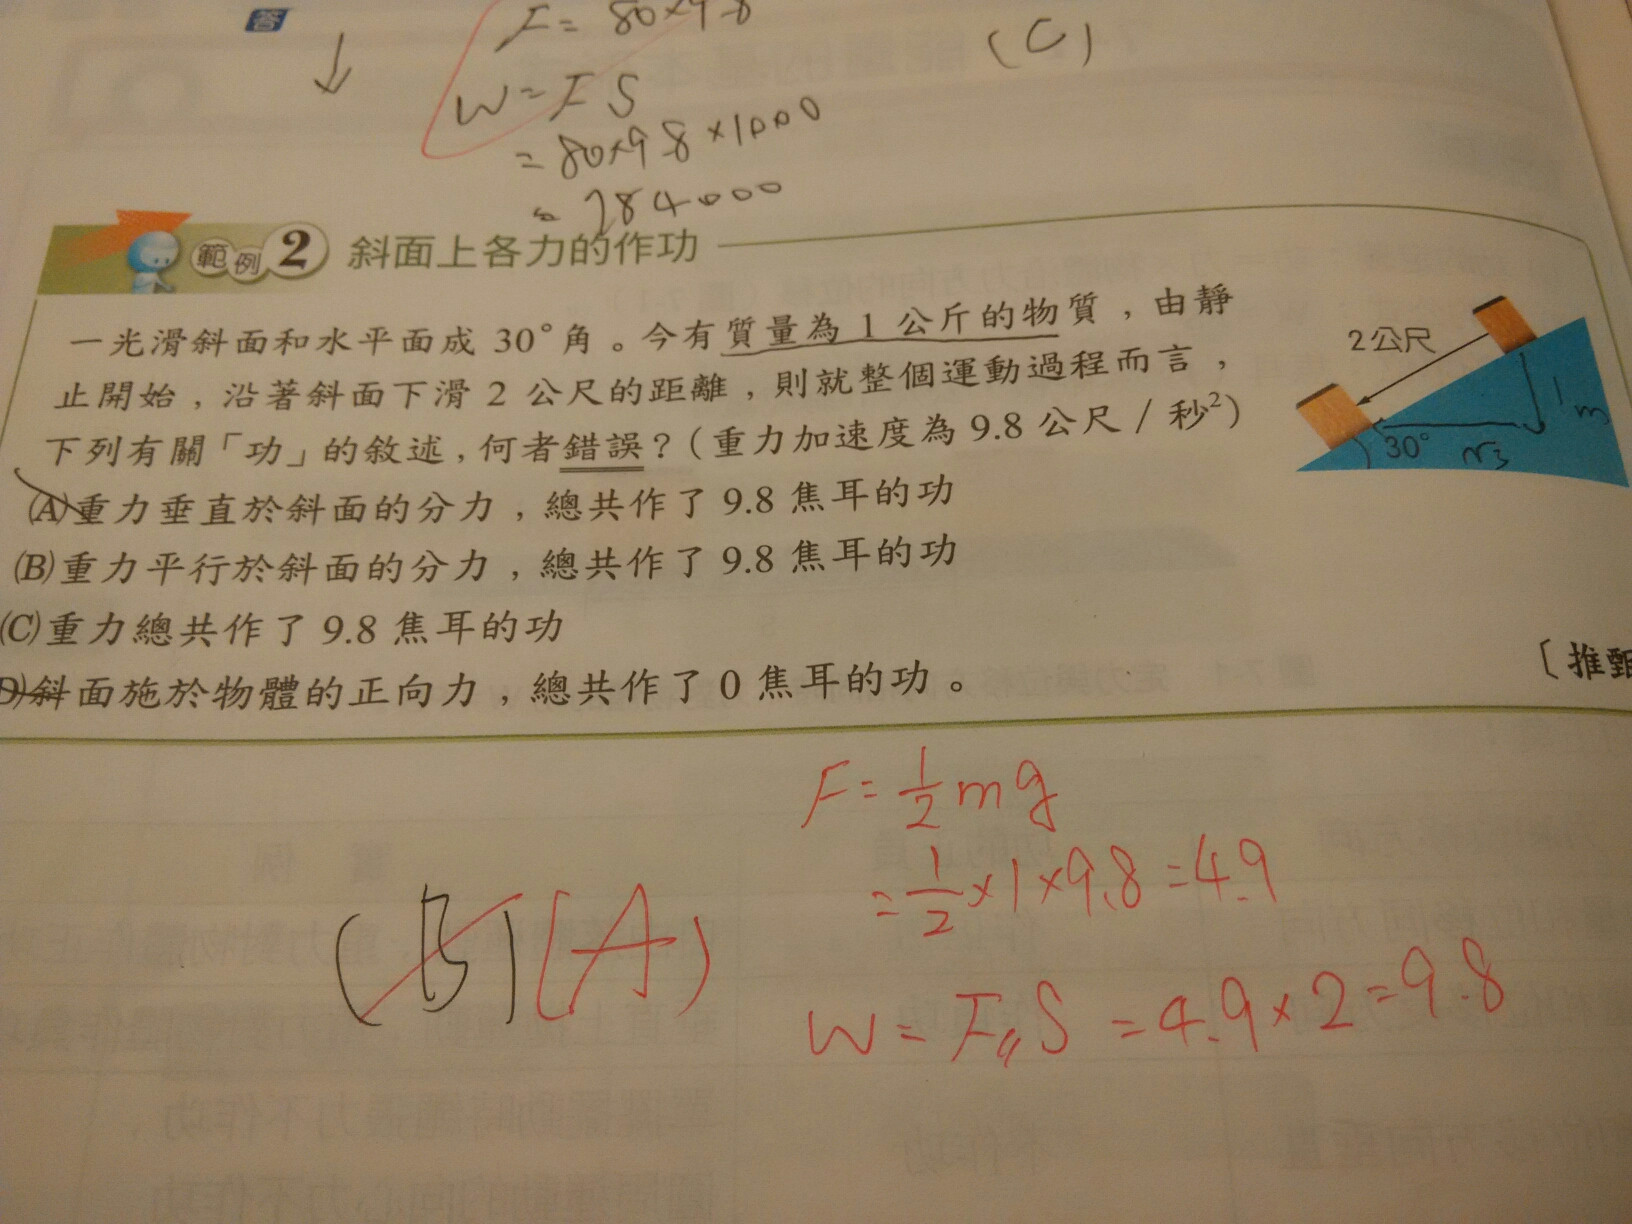 答
F = 80×9.8
(C)
W = F S
= 80×9.8×1000
= 784000
範例 2 斜面上各力的作功
一光滑斜面和水平面成 30°角。今有質量為 1 公斤的物質，由靜
止開始，沿著斜面下滑 2 公尺的距離，則就整個運動過程而言，
下列有關「功」的敘述，何者錯誤？(重力加速度為 9.8 公尺 / 秒²)
2公尺
1m
30°
√3
(A)重力垂直於斜面的分力，總共作了 9.8 焦耳的功
(B)重力平行於斜面的分力，總共作了 9.8 焦耳的功
(C)重力總共作了 9.8 焦耳的功
(D)斜面施於物體的正向力，總共作了 0 焦耳的功。
〔推甄
F = 1/2 mg
= 1/2 × 1 × 9.8 = 4.9
(B) (A)
W = F∥S = 4.9 × 2 = 9.8